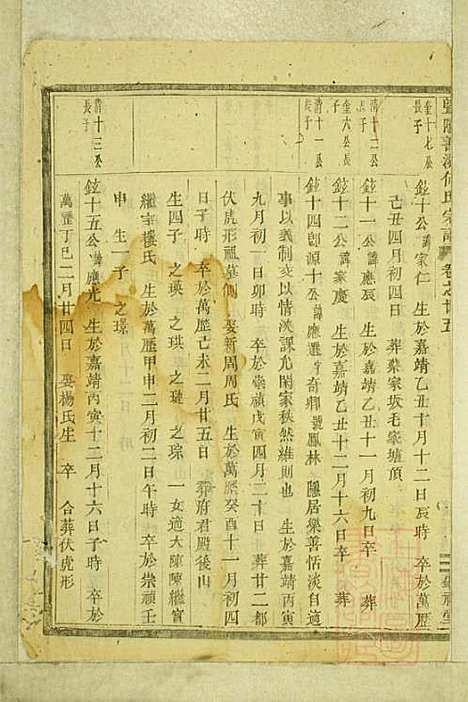 暨陽善溪何氏宗譜 卷之廿五
金十七公
長子
鉉十公諱家仁 生於嘉靖乙丑十月十二日辰時 卒於萬歷
己丑四月初四日 葬蔡家坂毛家塘頂
清十二公
長子
鉉十一公諱應辰 生於嘉靖乙丑十一月初九日卒 葬
金六公長
子
鉉十二公諱家慶 生於嘉靖乙丑十二月十六日卒 葬
清十一公
長子
鉉十四卽源十公諱應選字奇卿號鳳林 隱居樂善恬淡自適
事以義制交以情洪課允閑家秋然維則也 生於嘉靖丙寅
九月初一日卯時 卒於崇禎戊寅四月二十日 葬廿二都
伏虎形祖墓側 娶新周周氏 生於萬歷癸酉十一月初四
日子時 卒於萬歷己未二月廿五日 葬府君殿後山
生四子 之瑛 之 之璉 之琮 一女適大陳陳繼實
繼室樓氏 生於萬歷甲申二月初二日午時 卒於崇禎壬
申 生一子 之璟
清十三公
長子
鉉十五公諱應光 生於嘉靖丙寅十二月十六日子時 卒於
萬歷丁巳二月廿四日 娶楊氏生 卒 合葬伏虎形